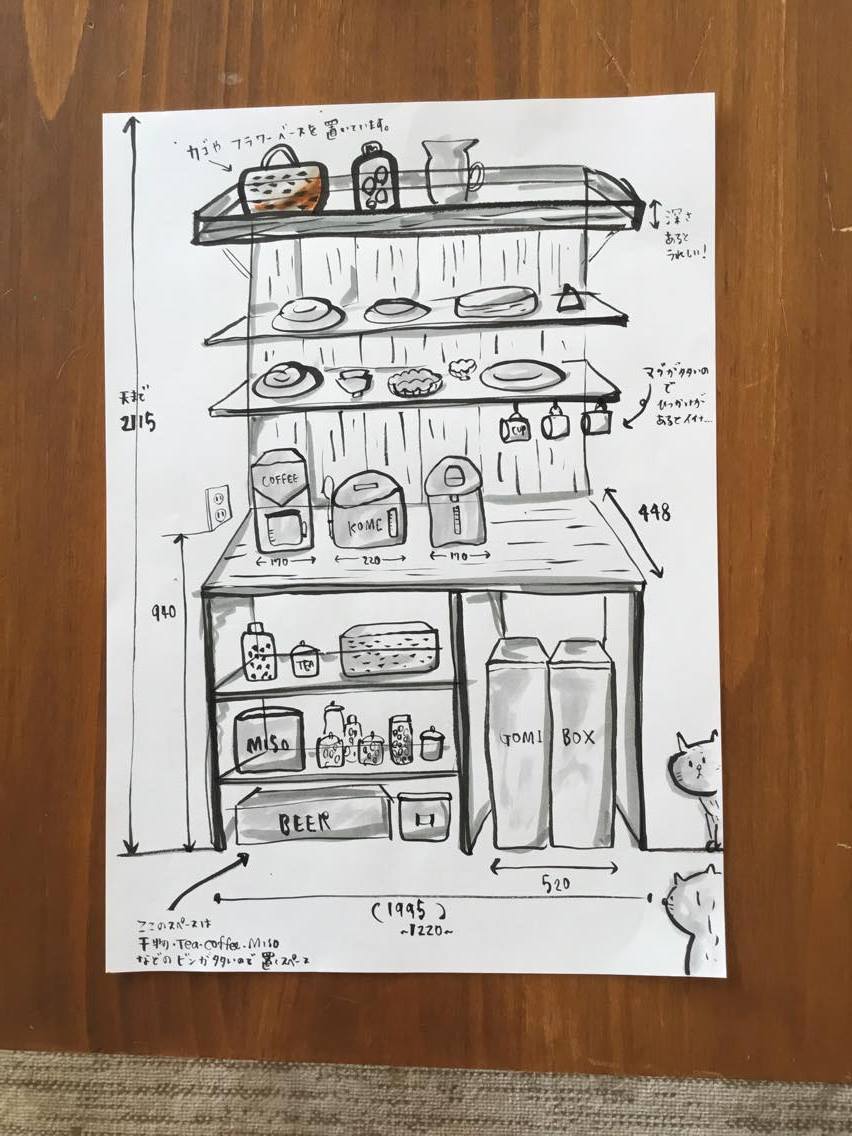 カゴや フラワーベースを 置いています。
深さ
あると
うれしい!
天まで
2115
マグがタタいの
で
ひっかけが
あるとイイナ...
CUP
COFFEE
KOME
170
220
170
448
940
TEA
MISO
GOMI BOX
BEER
520
(1995)
~1220~
ここのスペースは
干物・Tea・Coffee・MISO
などのビンがタタいので 置くスペース